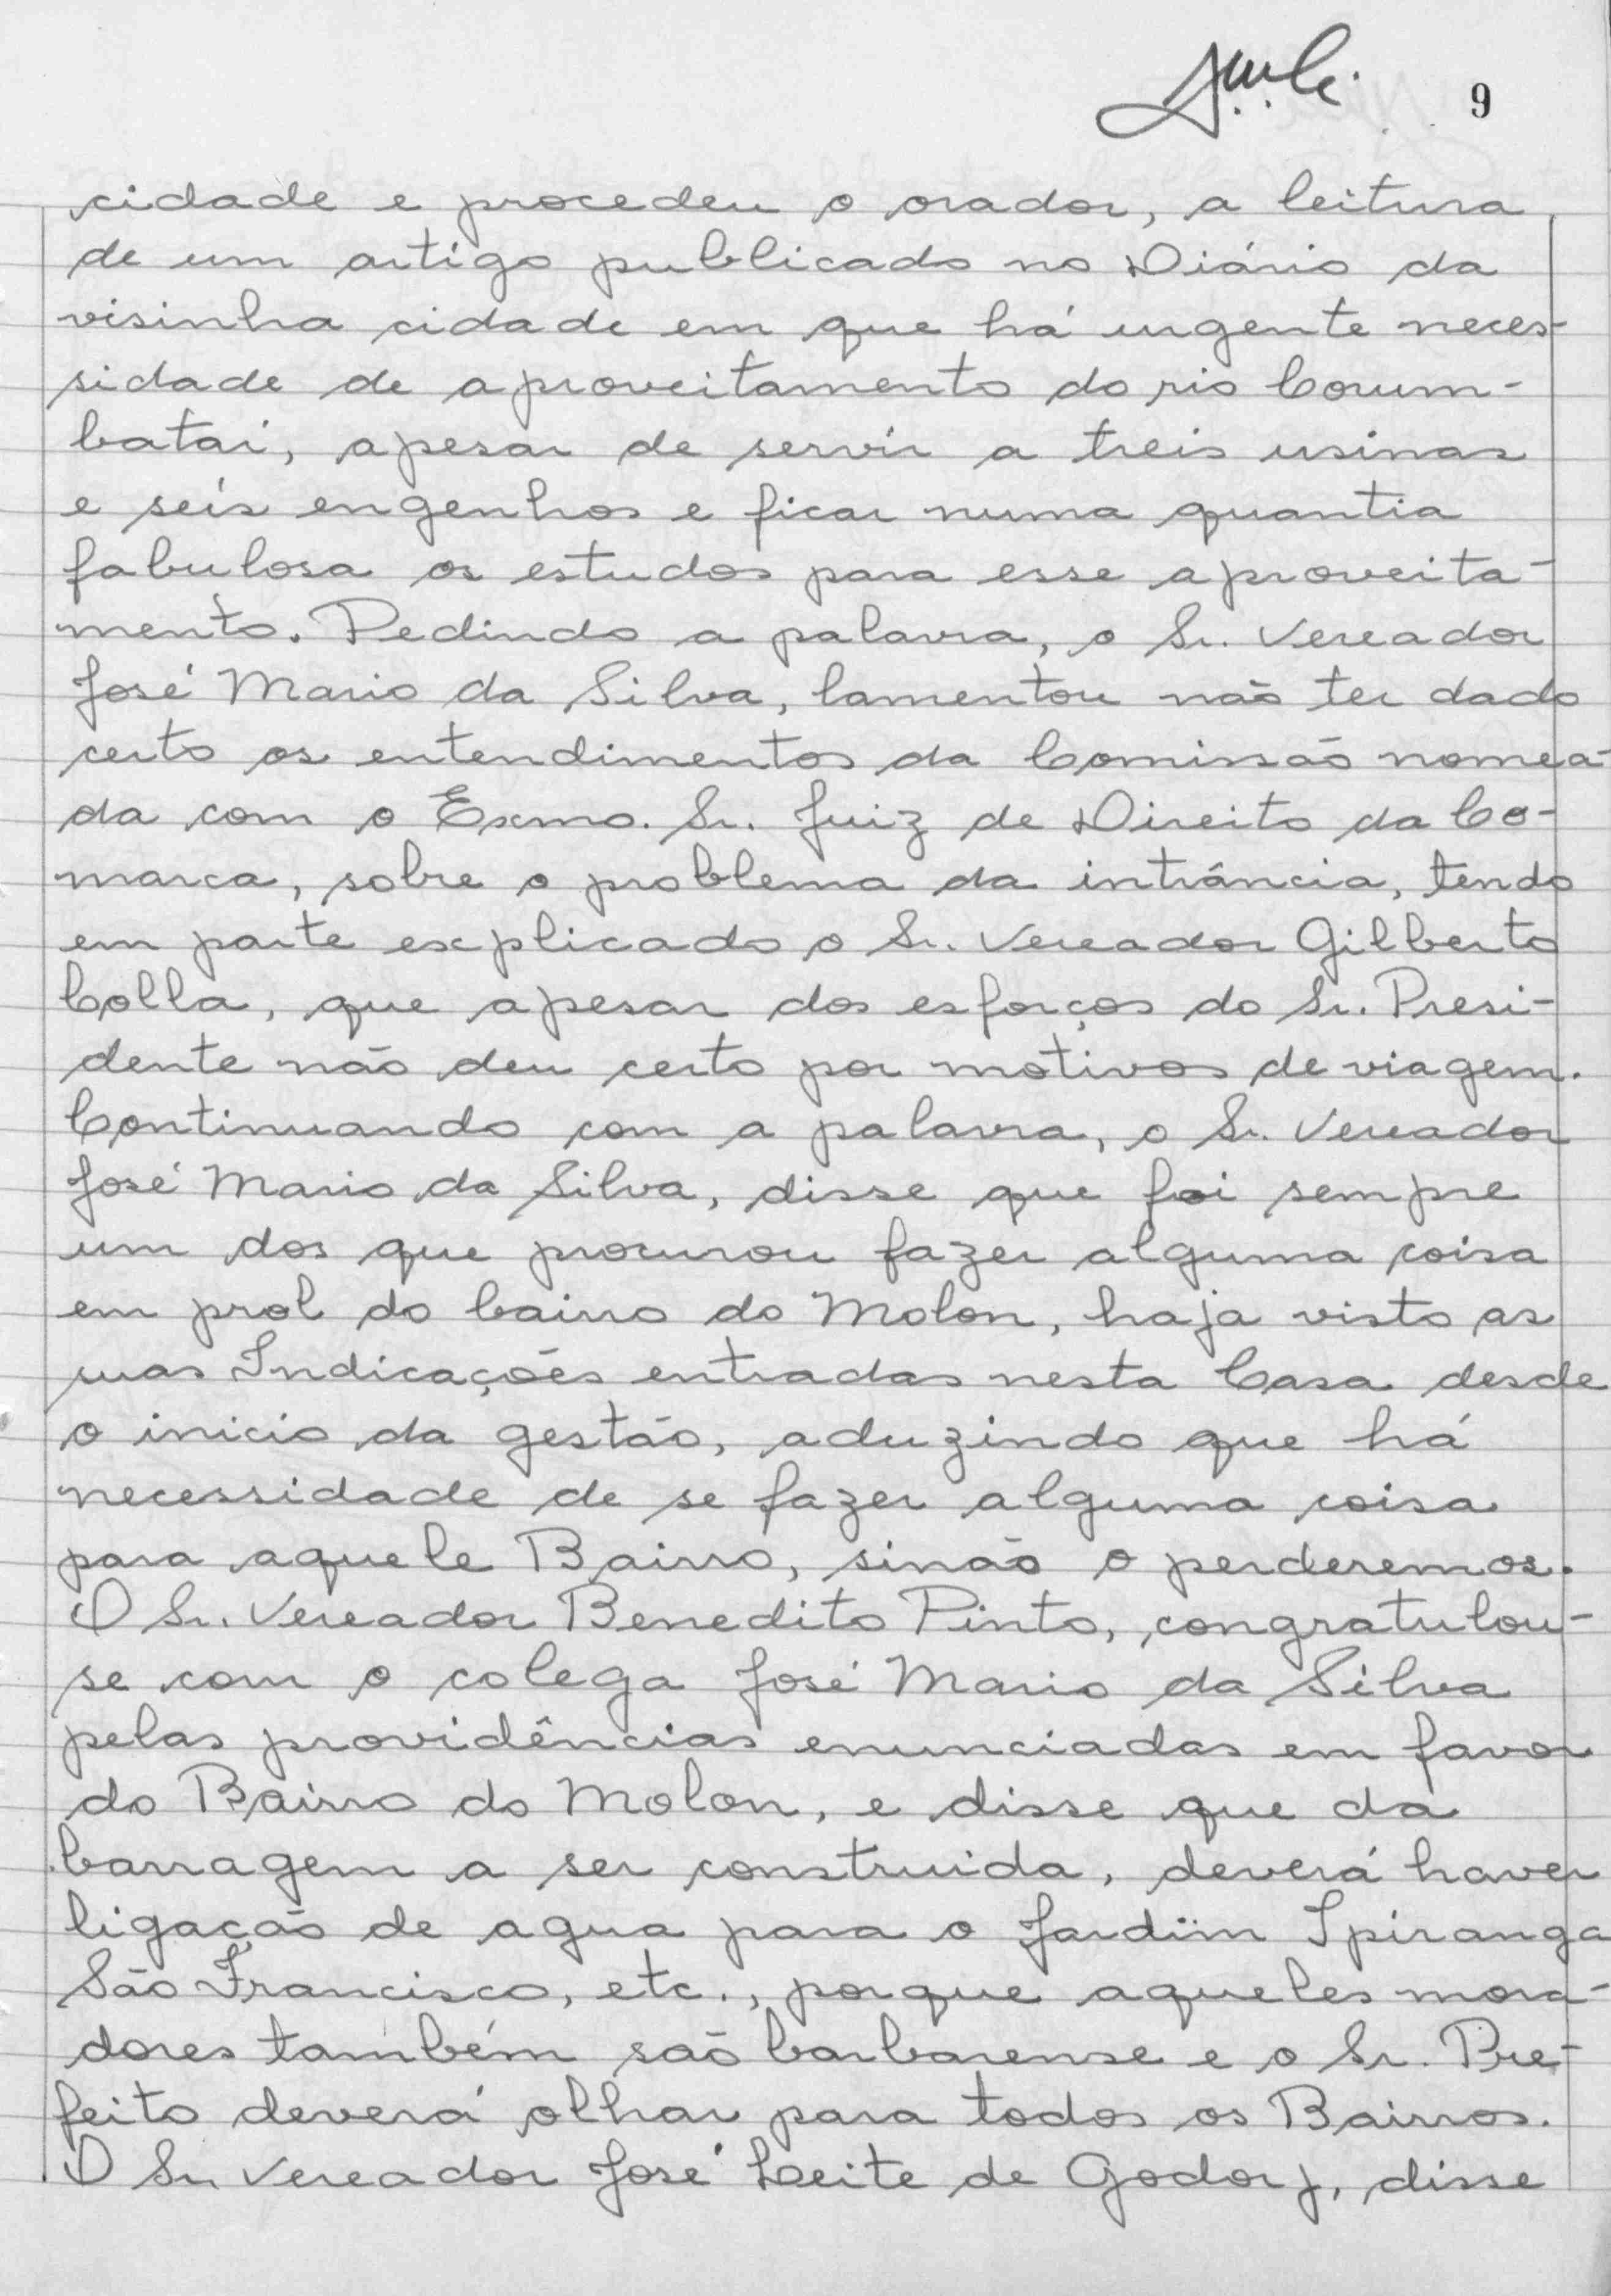 9
cidade e procedeu o orador, a leitura
de um artigo publicado no Diário da
visinha cidade em que há urgente neces-
sidade de aproveitamento do rio Corum-
batai, apesar de servir a treis usinas
e seis engenhos e ficar numa quantia
fabulosa os estudos para esse aproveita-
mento. Pedindo a palavra, o Sr. Vereador
José Mario da Silva, lamentou não ter dado
certo os entendimentos da Comissão nomea-
da com o Exmo. Sr. Juiz de Direito da Co-
marca, sobre o problema da intrância, tendo
em parte explicado o Sr. Vereador Gilberto
Colla, que apesar dos esforços do Sr. Presi-
dente não deu certo por motivos de viagem.
Continuando com a palavra, o Sr. Vereador
José Mario da Silva, disse que foi sempre
um dos que procurou fazer alguma coisa
em prol do bairro do Molon, haja visto as
suas Indicações entradas nesta Casa desde
o inicio da gestão, aduzindo que há
necessidade de se fazer alguma coisa
para aquele Bairro, sinão o perderemos.
O Sr. Vereador Benedito Pinto, congratulou-
se com o colega José Mario da Silva
pelas providências enunciadas em favor
do Bairro do Molon, e disse que da
barragem a ser construida, deverá haver
ligação de agua para o Jardim Ipiranga
São Francisco, etc., porque aqueles mora-
dores também são barbarense e o Sr. Pre-
feito deverá olhar para todos os Bairros.
O Sr. Vereador José Leite de Godoy, disse